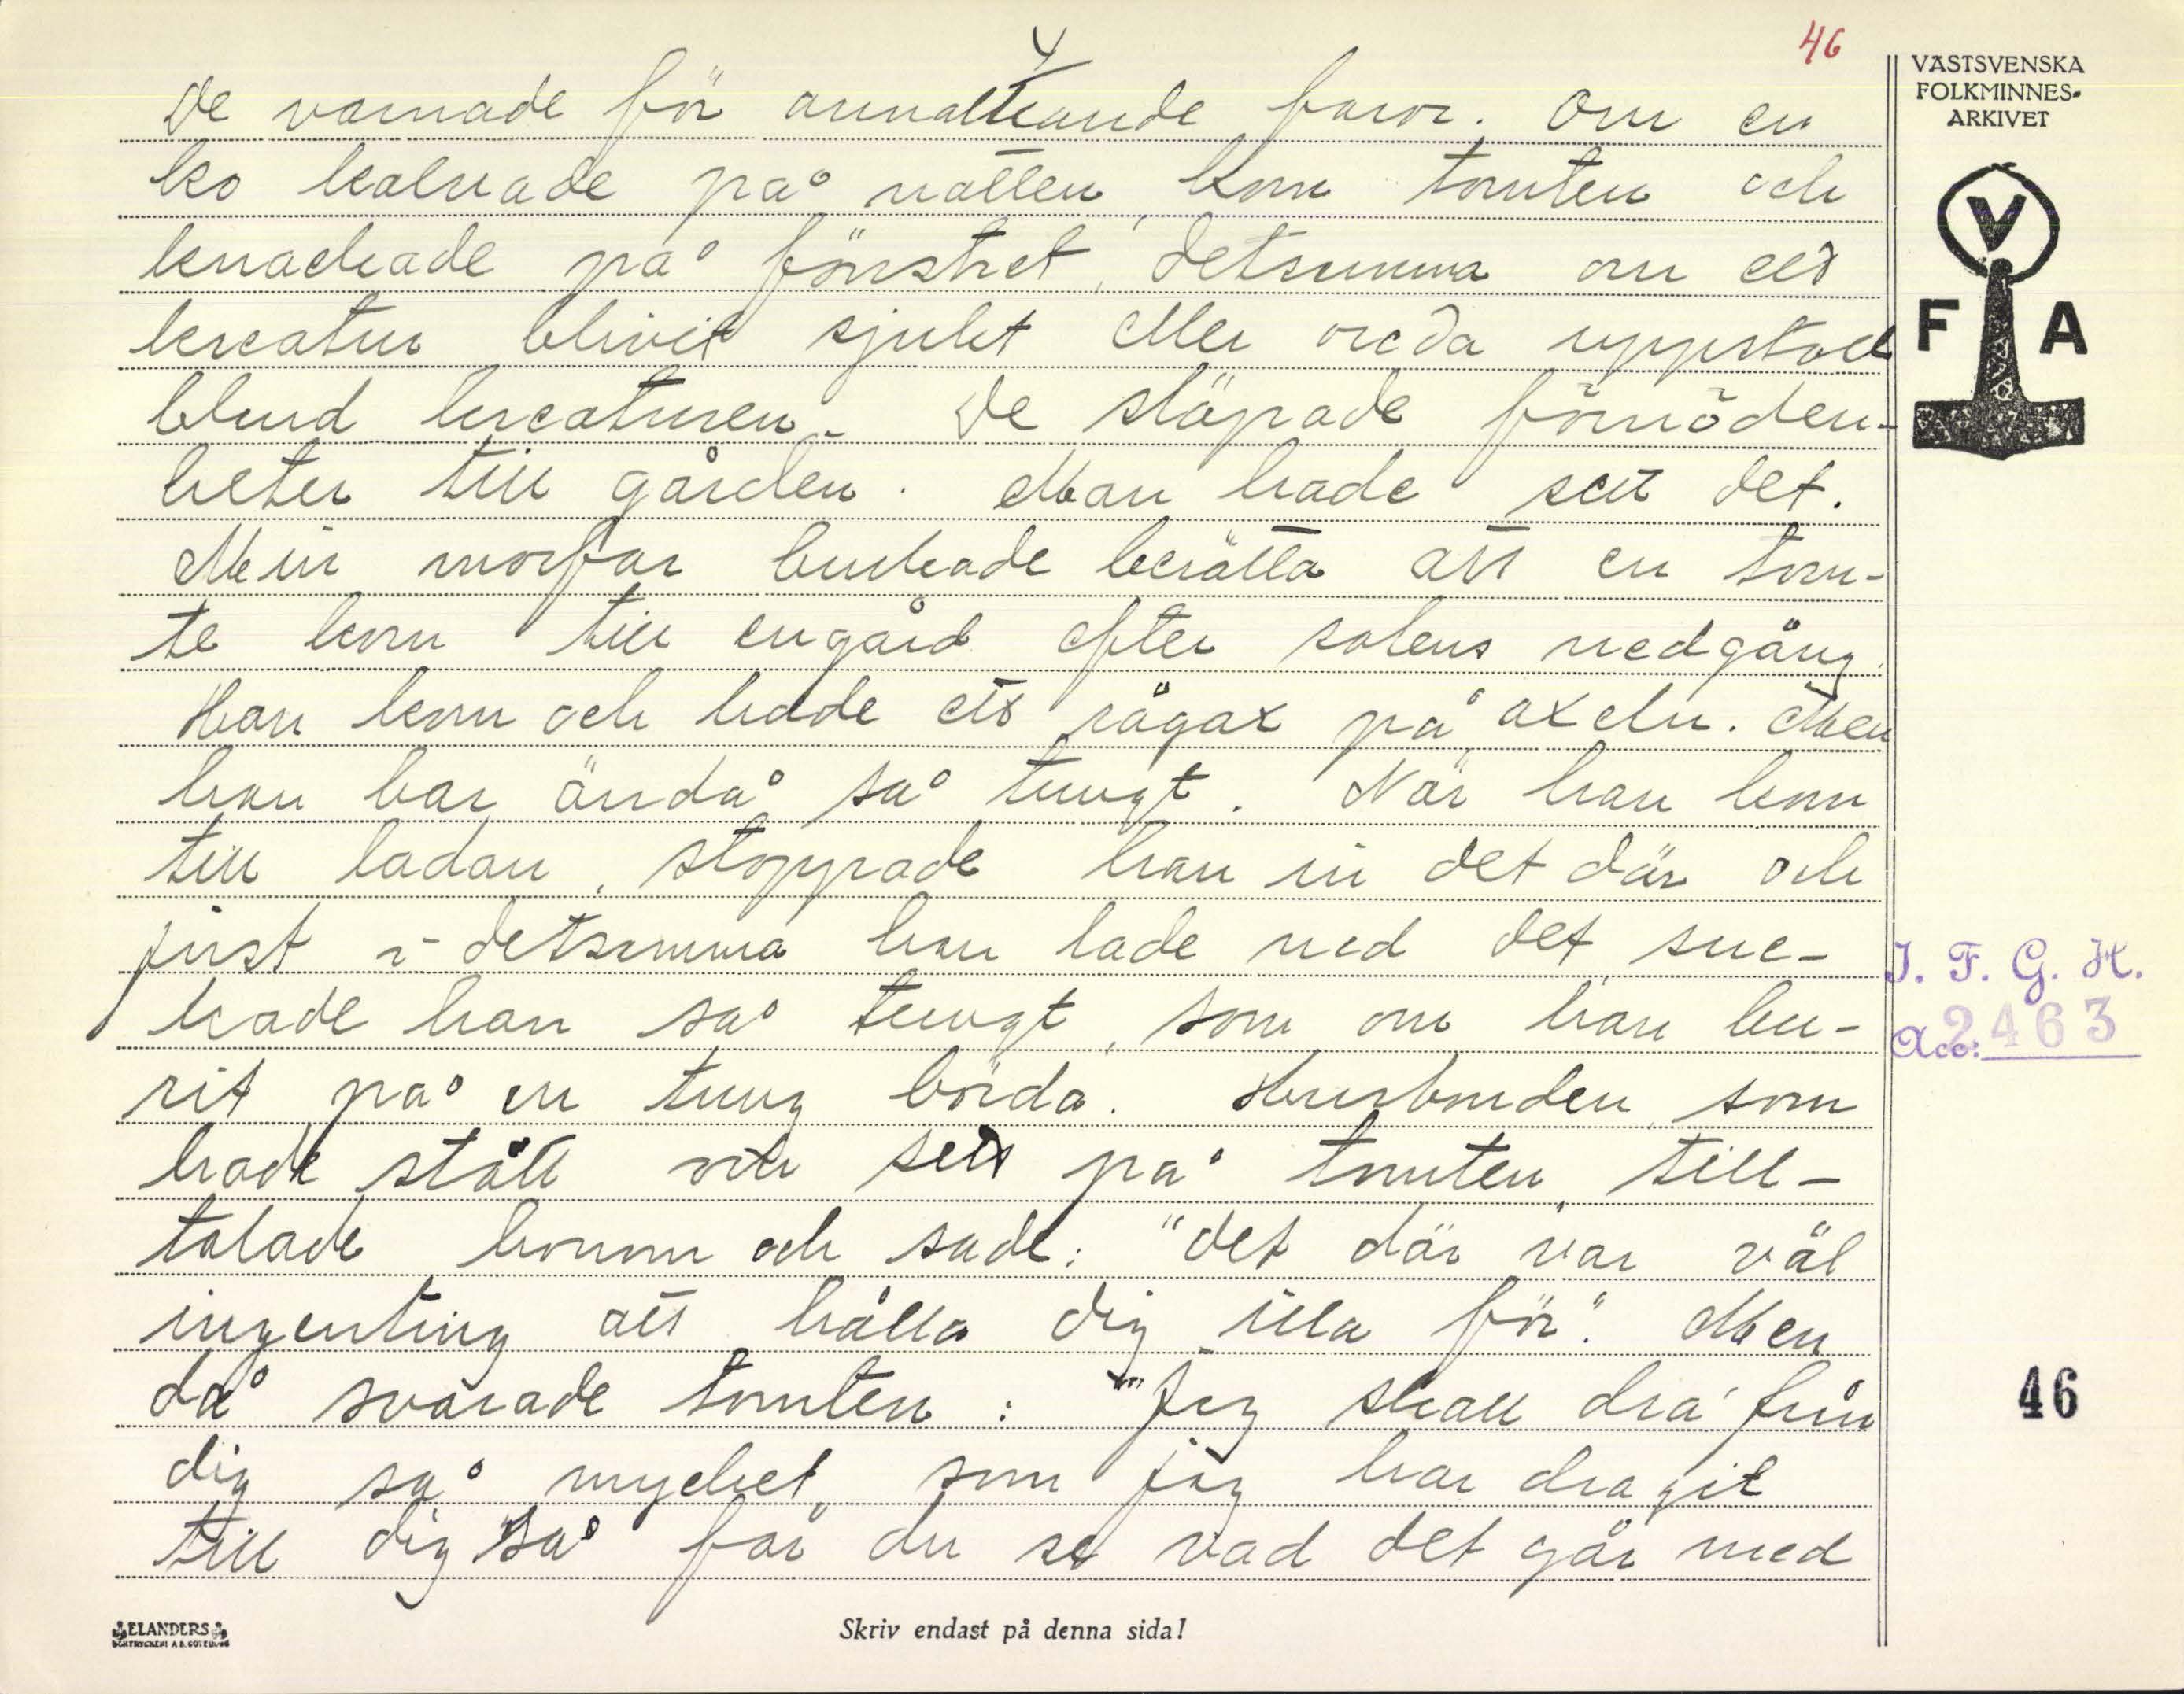 4
46
VÄSTSVENSKA
FOLKMINNES-
ARKIVET
V
F A
De varnade för annalkande faror. Om en
ko kalvade på natten, kom tomten och
knackade på fönstret, detsamma om ett
kreatur blivit sjukt eller oreda uppstod
bland kreaturen. De släpade förnöden-
heter till gården. Man hade sett det.
Min morfar brukade berätta att en tom-
te kom till en gård efter solens nedgång.
Han kom och hade ett rågax på axeln. Men
han bar ändå så tungt. När han kom
till ladan, stoppade han in det där och
just i detsamma han lade ned det, suc-
kade han så tungt, som om han bu-
rit på en tung börda. Husbonden, som
hade stått och sett på tomten, till-
talade honom och sade: "det där var väl
ingenting att hålla dig illa för." Men
då svarade tomten: "Jag skall dra från
dig så mycket, som jag har dragit
till dig så får du se vad det går med
I. F. G. H.
Acc: 2463
46
ELANDERS
BOKTRYCKERI A.B. GÖTEBORG
Skriv endast på denna sida!